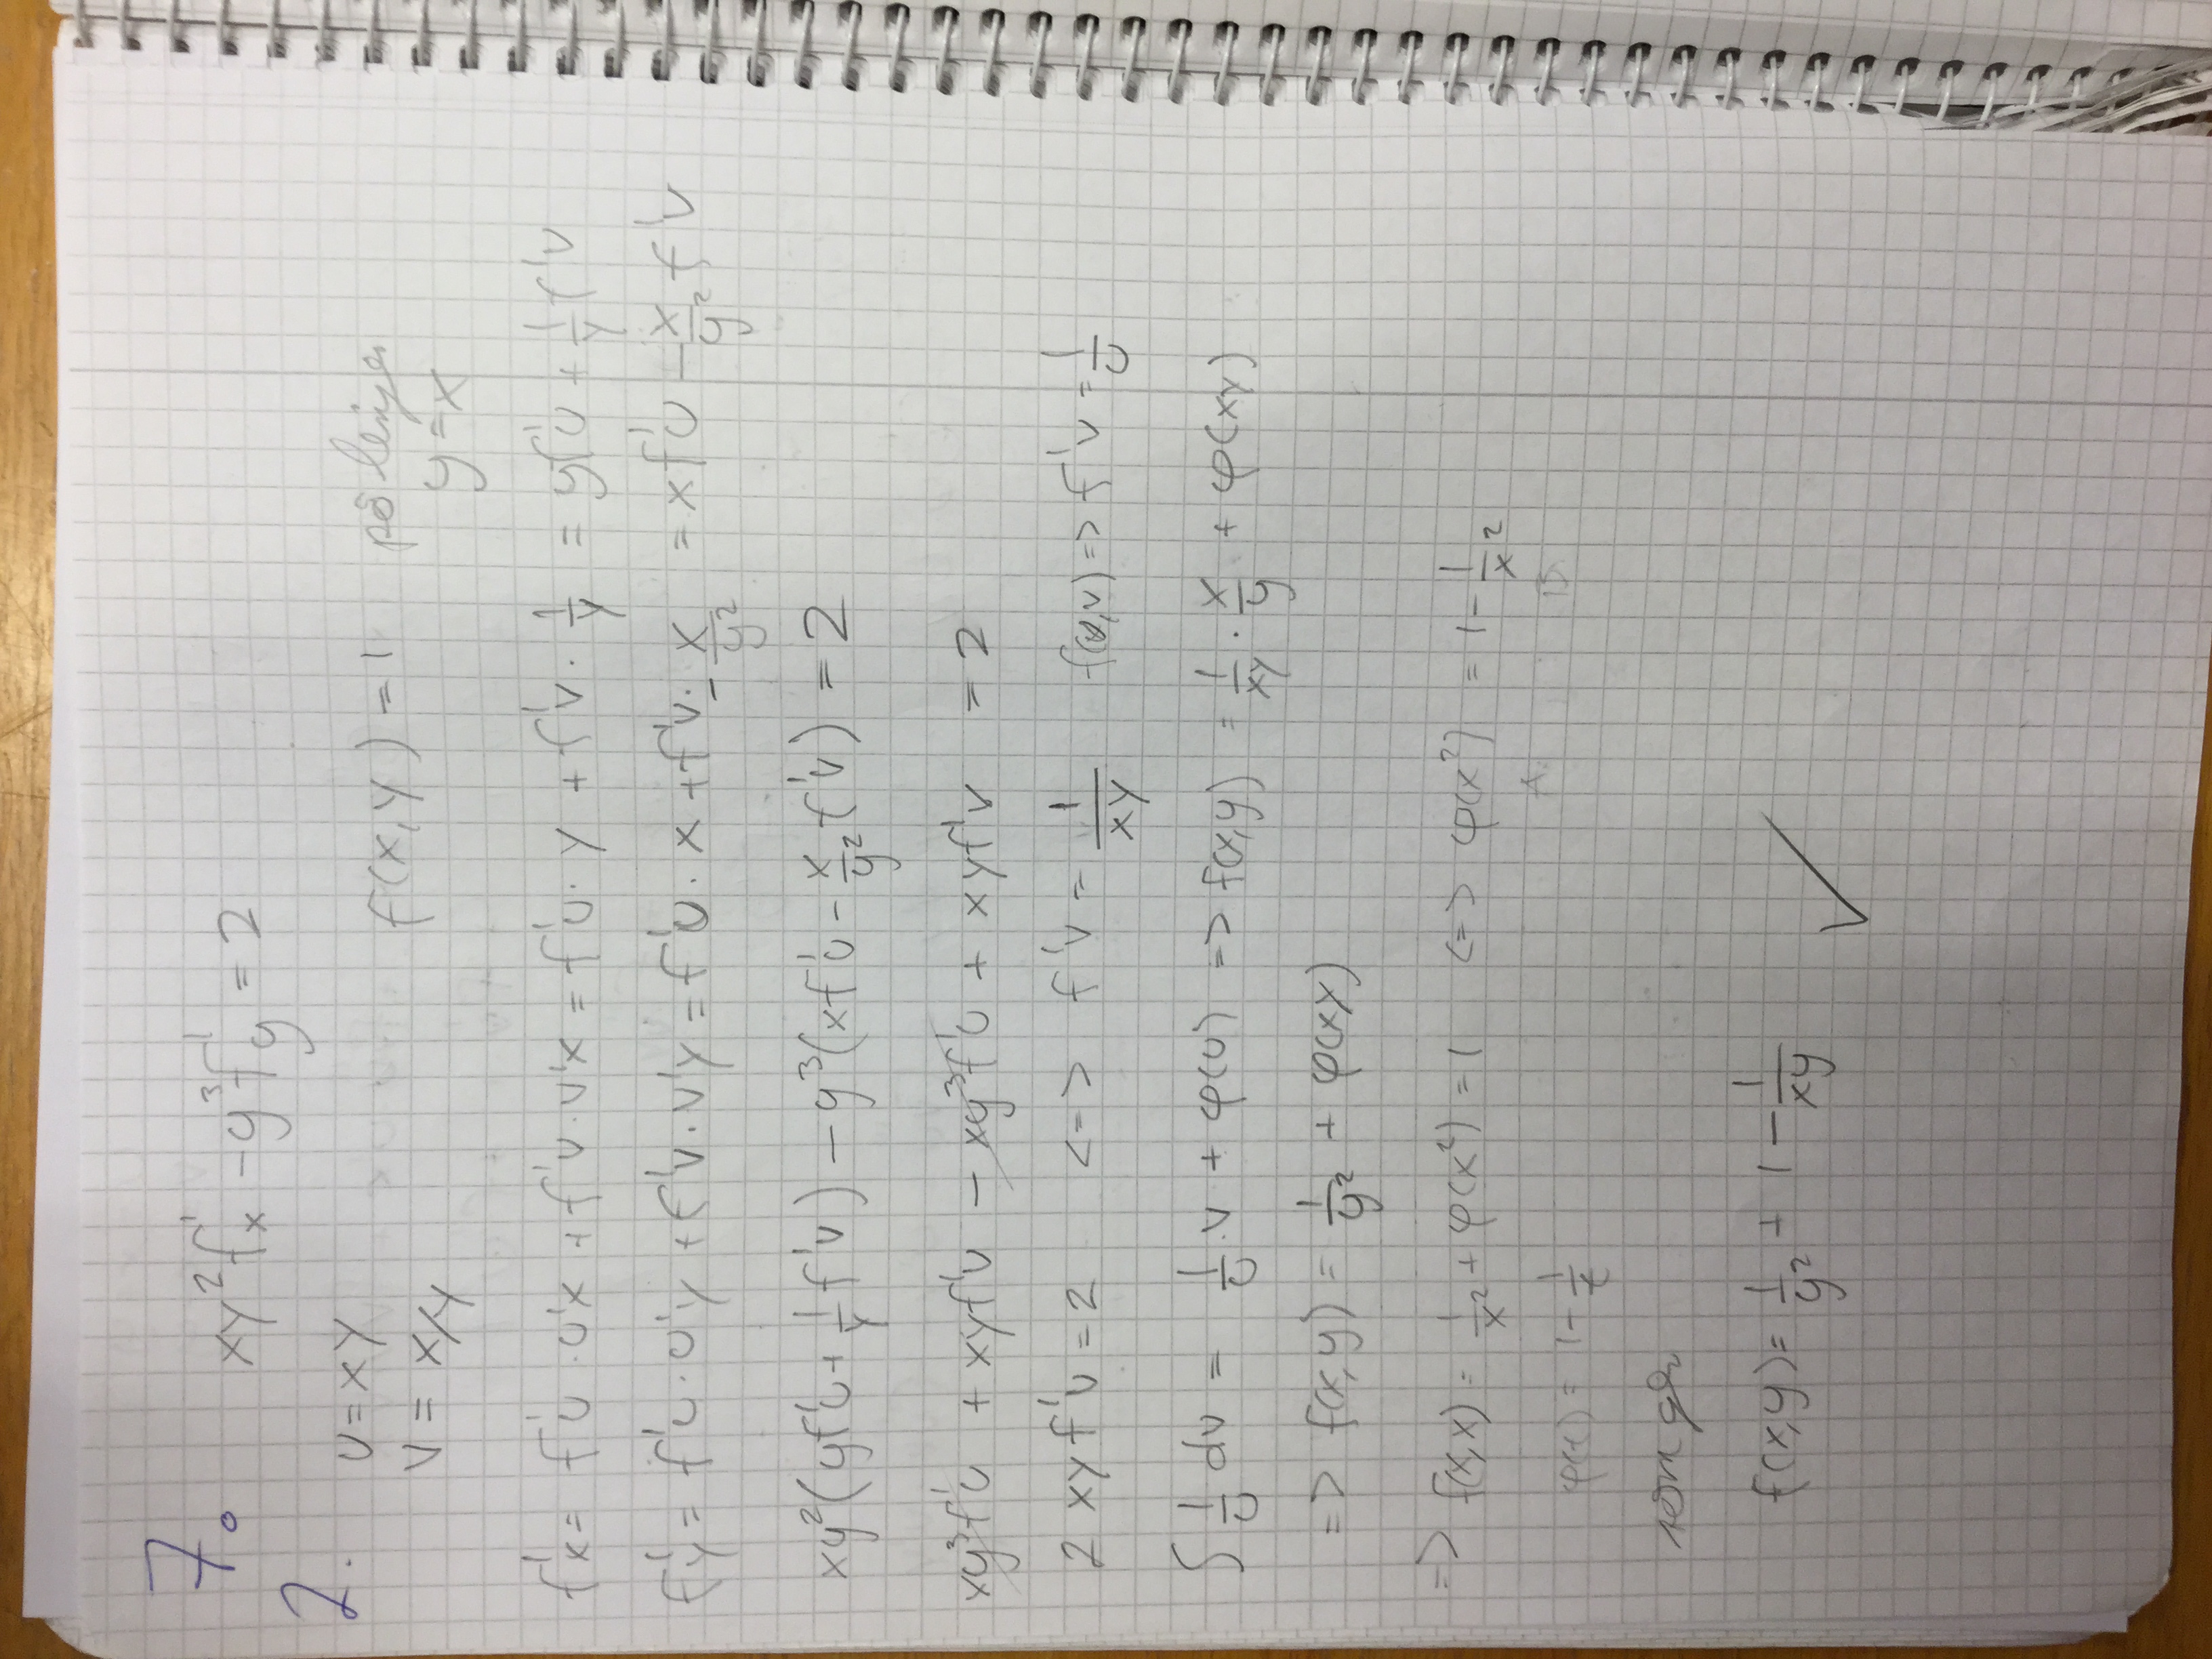 7.
xy²f'x - y³f'y = 2
2.
u = xy
v = x/y
f(x,y) = 1 på linjen
y = x
f'x = f'u · u'x + f'v · v'x = f'u · y + f'v · 1/y = yf'u + 1/y f'v
f'y = f'u · u'y + f'v · v'y = f'u · x + f'v · - x/y² = xf'u - x/y² f'v
xy²(yf'u + 1/y f'v) - y³(xf'u - x/y² f'v) = 2
xy³f'u + xyf'v - xy³f'u + xyf'v = 2
2xyf'v = 2 <=> f'v = 1/xy f(u,v) => f'v = 1/u
∫ 1/u dv = 1/u · v + φ(u) => f(x,y) = 1/xy · x/y + φ(xy)
=> f(x,y) = 1/y² + φ(xy)
=> f(x,x) = 1/x² + φ(x²) = 1 <=> φ(x²) = 1 - 1/x²
φ(t) = 1 - 1/t
som ger
f(x,y) = 1/y² + 1 - 1/xy ✓